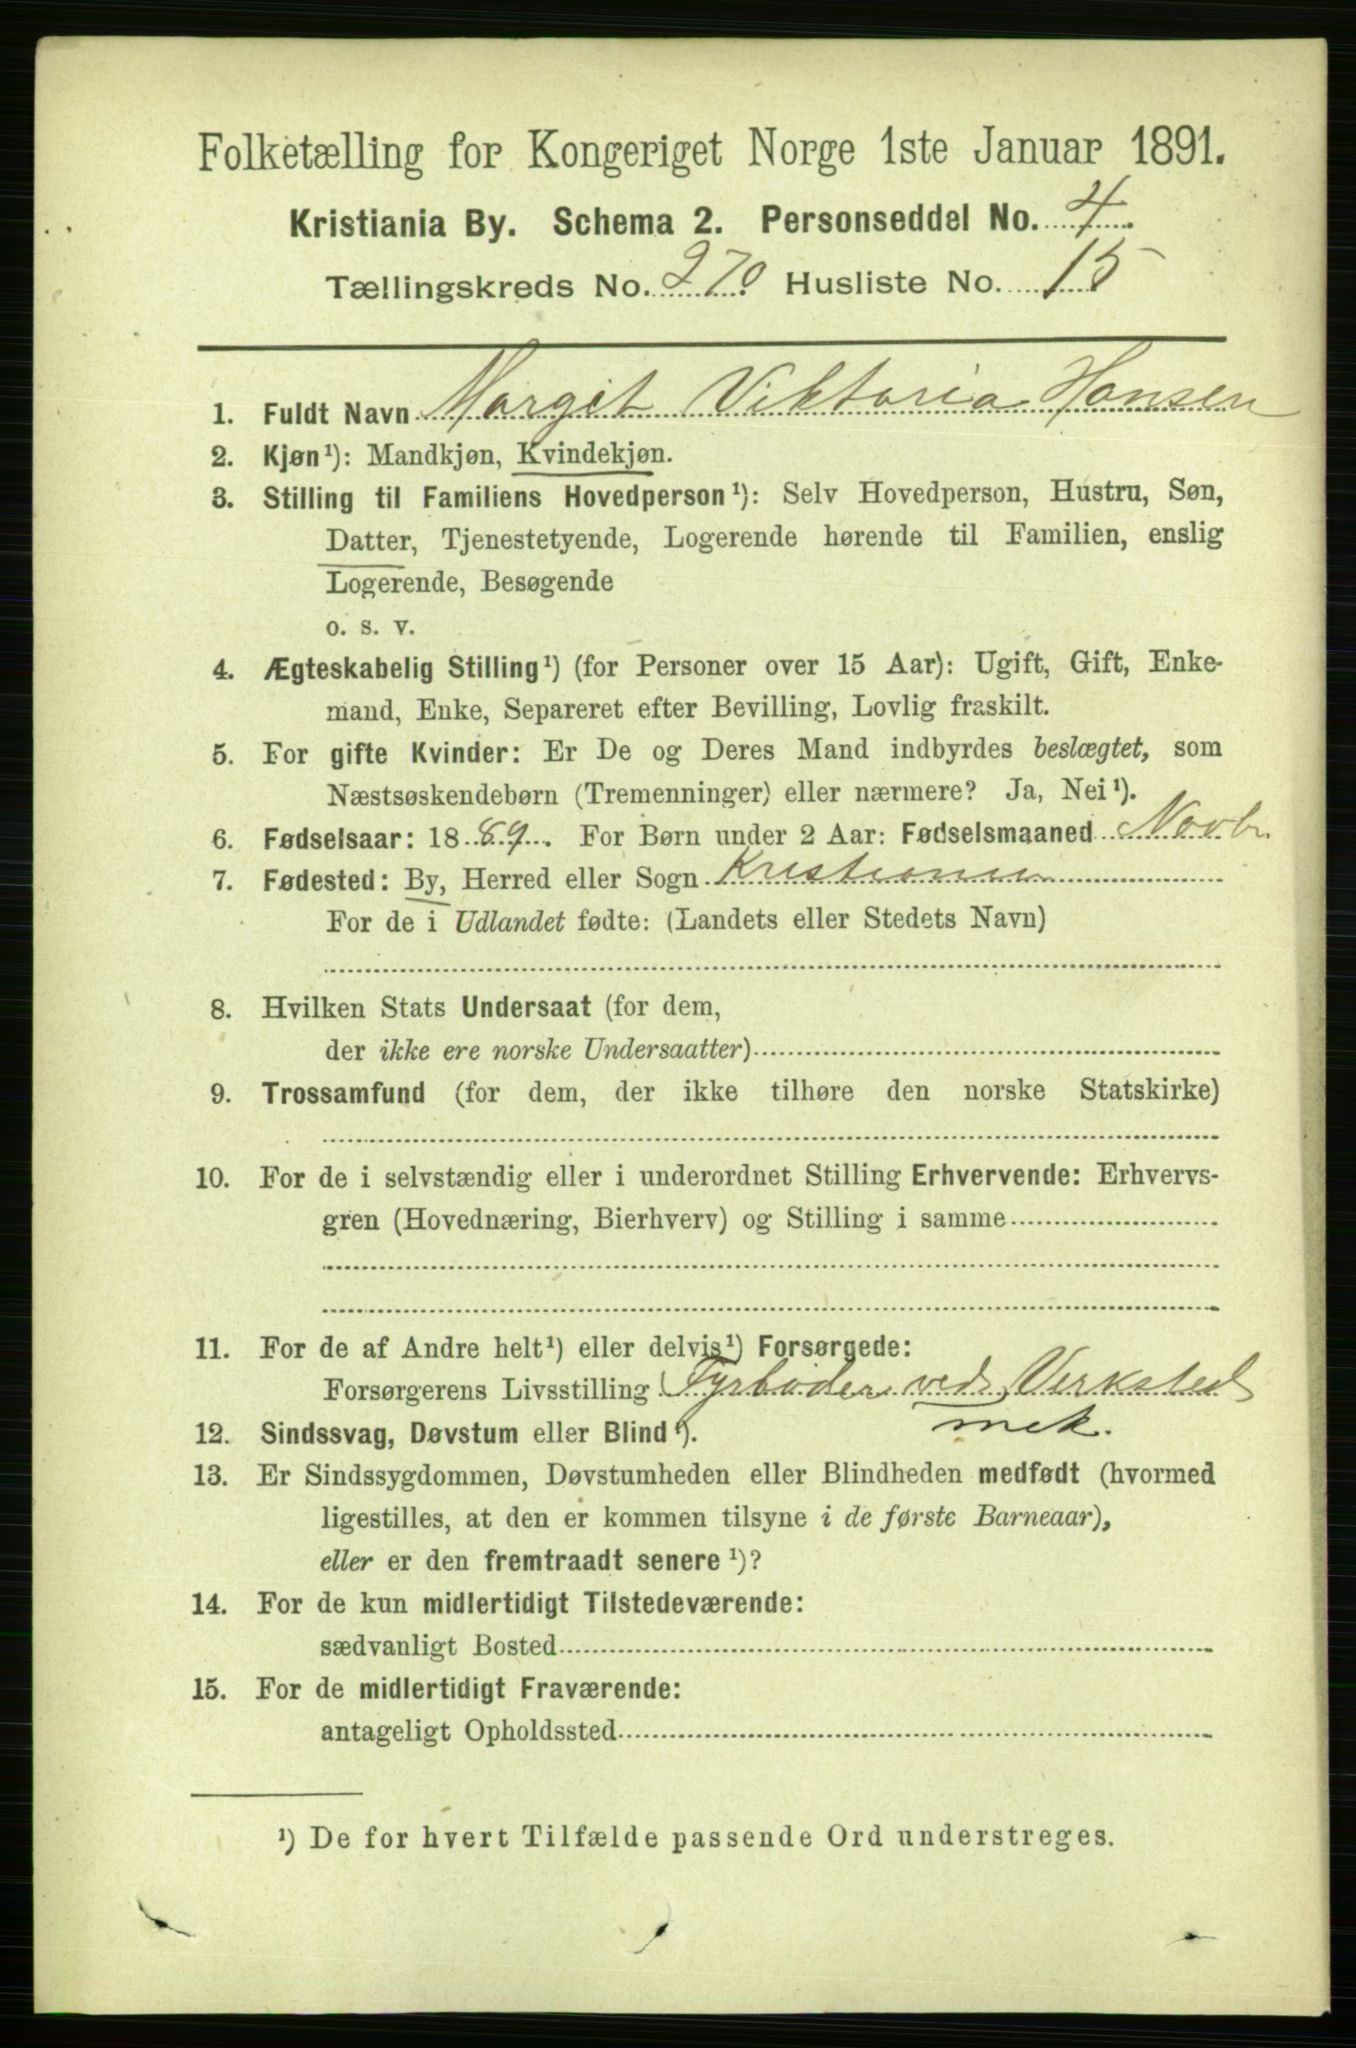 Folketælling for Kongeriget Norge 1ste Januar 1891.
Kristiania By. Schema 2. Personseddel No. 4.
Tællingskreds No. 270 Husliste No. 15
1. Fuldt Navn Margit Viktoria Hansen
2. Kjøn¹): Mandkjøn, Kvindekjøn.
3. Stilling til Familiens Hovedperson¹): Selv Hovedperson, Hustru, Søn,
Datter, Tjenestetyende, Logerende hørende til Familien, enslig
Logerende, Besøgende
o. s. v.
4. Ægteskabelig Stilling¹) (for Personer over 15 Aar): Ugift, Gift, Enke-
mand, Enke, Separeret efter Bevilling, Lovlig fraskilt.
5. For gifte Kvinder: Er De og Deres Mand indbyrdes beslægtet, som
Næstsøskendebørn (Tremenninger) eller nærmere? Ja, Nei¹).
6. Fødselsaar: 1889. For Børn under 2 Aar: Fødselsmaaned Novbr.
7. Fødested: By, Herred eller Sogn Kristiania
For de i Udlandet fødte: (Landets eller Stedets Navn)
8. Hvilken Stats Undersaat (for dem,
der ikke ere norske Undersaatter)
9. Trossamfund (for dem, der ikke tilhøre den norske Statskirke)
10. For de i selvstændig eller i underordnet Stilling Erhvervende: Erhvervs-
gren (Hovednæring, Bierhverv) og Stilling i samme
11. For de af Andre helt¹) eller delvis¹) Forsørgede:
Forsørgerens Livsstilling Fyrbøder ved Verksted
mek.
12. Sindssvag, Døvstum eller Blind¹).
13. Er Sindssygdommen, Døvstumheden eller Blindheden medfødt (hvormed
ligestilles, at den er kommen tilsyne i de første Barneaar),
eller er den fremtraadt senere¹)?
14. For de kun midlertidigt Tilstedeværende:
sædvanligt Bosted
15. For de midlertidigt Fraværende:
antageligt Opholdssted
¹) De for hvert Tilfælde passende Ord understreges.